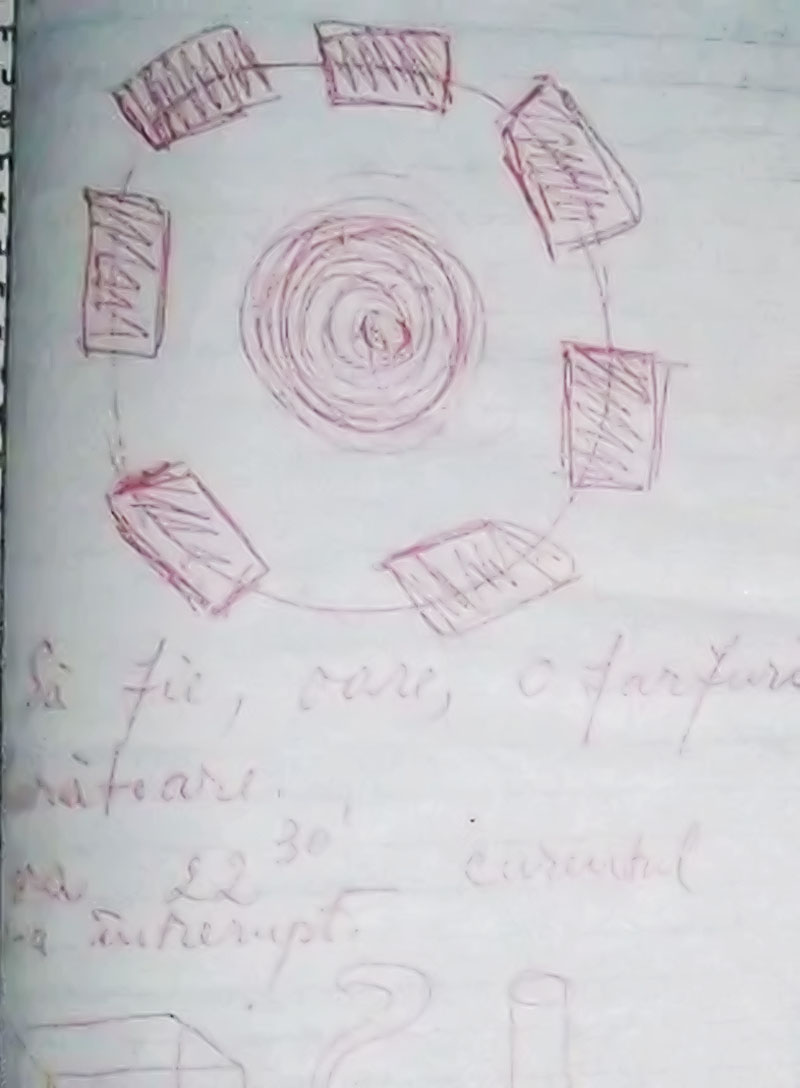 Să fie, oare, o farfuri
urătoare.
ra 22 30' curentul
-a întrerupt.